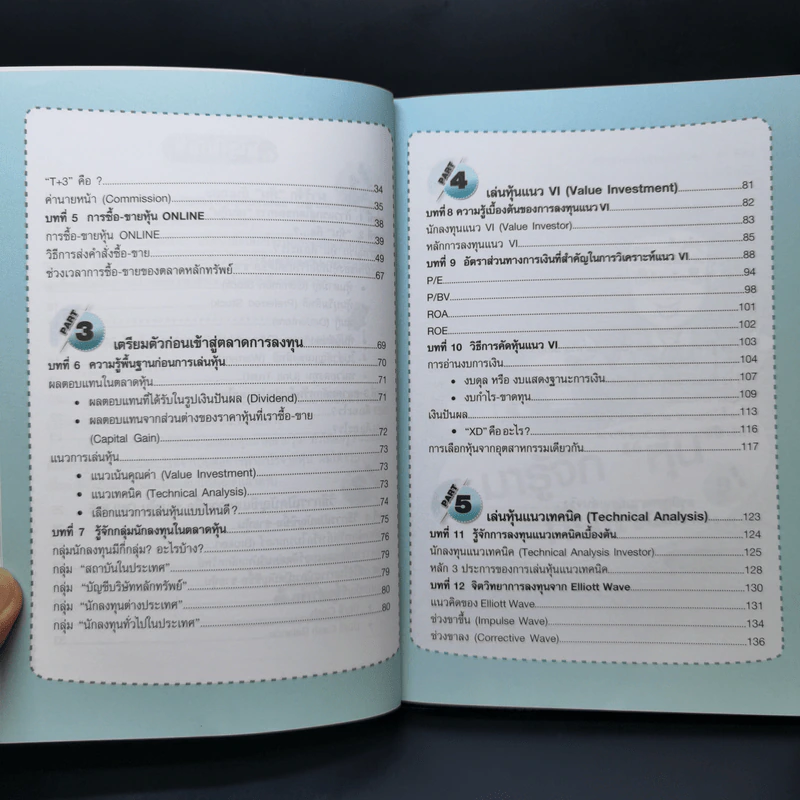 "T+3" คือ ? 34
ค่านายหน้า (Commission) 35
บทที่ 5 การซื้อ-ขายหุ้น ONLINE 38
การซื้อ-ขายหุ้น ONLINE 39
วิธีการส่งคำสั่งซื้อ-ขาย 49
ช่วงเวลาการซื้อ-ขายของตลาดหลักทรัพย์ 67
PART 3 เตรียมตัวก่อนเข้าสู่ตลาดการลงทุน 69
บทที่ 6 ความรู้พื้นฐานก่อนการเล่นหุ้น 70
ผลตอบแทนในตลาดหุ้น 71
• ผลตอบแทนที่ได้รับในรูปเงินปันผล (Dividend) 71
• ผลตอบแทนจากส่วนต่างของราคาหุ้นที่เราซื้อ-ขาย
(Capital Gain) 72
แนวการเล่นหุ้น 73
• แนวเน้นคุณค่า (Value Investment) 73
• แนวเทคนิค (Technical Analysis) 73
• เลือกแนวการเล่นหุ้นแบบไหนดี? 74
บทที่ 7 รู้จักกลุ่มนักลงทุนในตลาดหุ้น 75
กลุ่มนักลงทุนมีกี่กลุ่ม? อะไรบ้าง? 76
กลุ่ม "สถาบันในประเทศ" 79
กลุ่ม "บัญชีบริษัทหลักทรัพย์" 80
กลุ่ม "นักลงทุนต่างประเทศ" 80
กลุ่ม "นักลงทุนทั่วไปในประเทศ" 80
PART 4 เล่นหุ้นแนว VI (Value Investment) 81
บทที่ 8 ความรู้เบื้องต้นของการลงทุนแนว VI 82
นักลงทุนแนว VI (Value Investor) 83
หลักการลงทุนแนว VI 85
บทที่ 9 อัตราส่วนทางการเงินที่สำคัญในการวิเคราะห์แนว VI 88
P/E 94
P/BV 98
ROA 101
ROE 102
บทที่ 10 วิธีการคัดหุ้นแนว VI 103
การอ่านงบการเงิน 104
• งบดุล หรือ งบแสดงฐานะการเงิน 107
• งบกำไร-ขาดทุน 109
เงินปันผล 113
• "XD" คืออะไร? 116
การเลือกหุ้นจากอุตสาหกรรมเดียวกัน 117
PART 5 เล่นหุ้นแนวเทคนิค (Technical Analysis) 123
บทที่ 11 รู้จักการลงทุนแนวเทคนิคเบื้องต้น 124
นักลงทุนแนวเทคนิค (Technical Analysis Investor) 125
หลัก 3 ประการของการเล่นหุ้นแนวเทคนิค 128
บทที่ 12 จิตวิทยาการลงทุนจาก Elliott Wave 130
แนวคิดของ Elliott Wave 131
ช่วงขาขึ้น (Impulse Wave) 134
ช่วงขาลง (Corrective Wave) 136